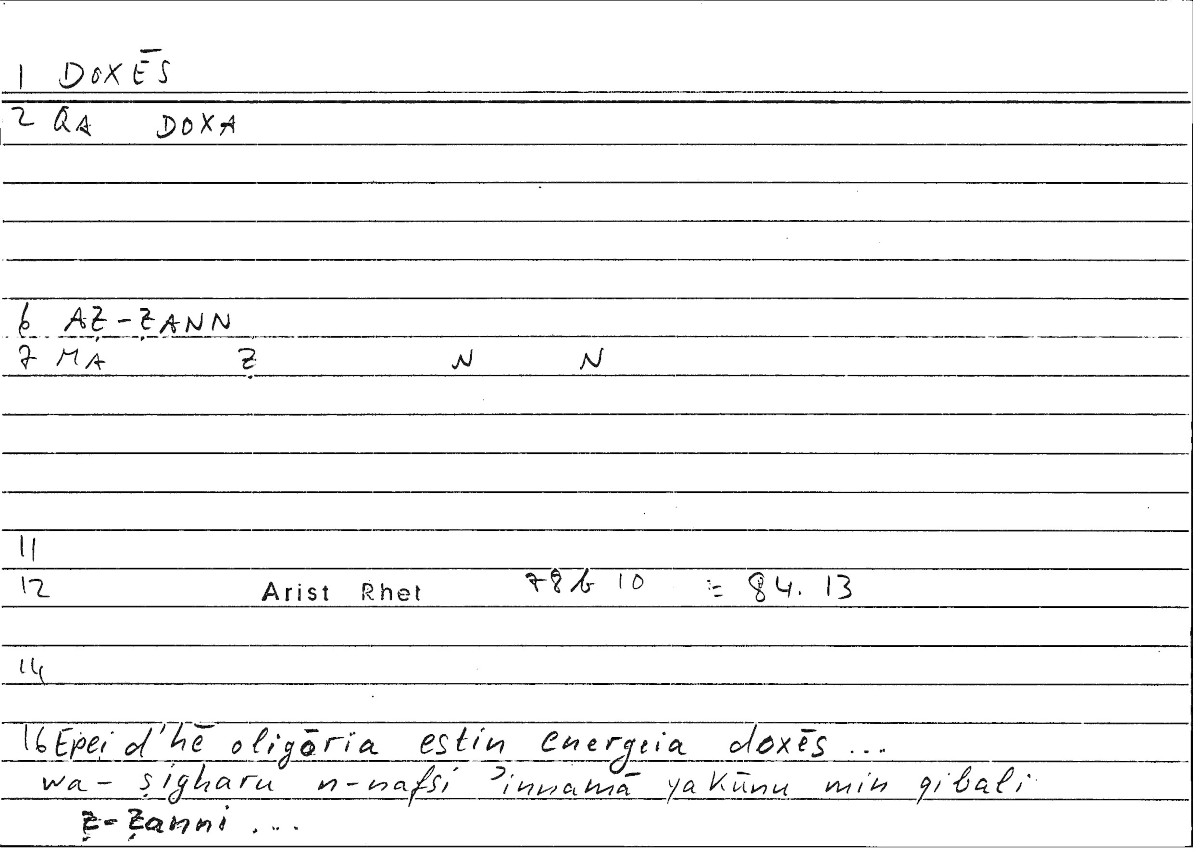 1 DOXĒS
2 QA DOXA
6 AẒ-ẒANN
7 MA Ẓ N N
11
12 Arist Rhet 78b 10 = 84.13
14
16 Epei d'hē oligōria estin energeia doxēs ...
wa-ṣigharu n-nafsi ʾinnamā yakūnu min qibali
ẓ-ẓanni ...